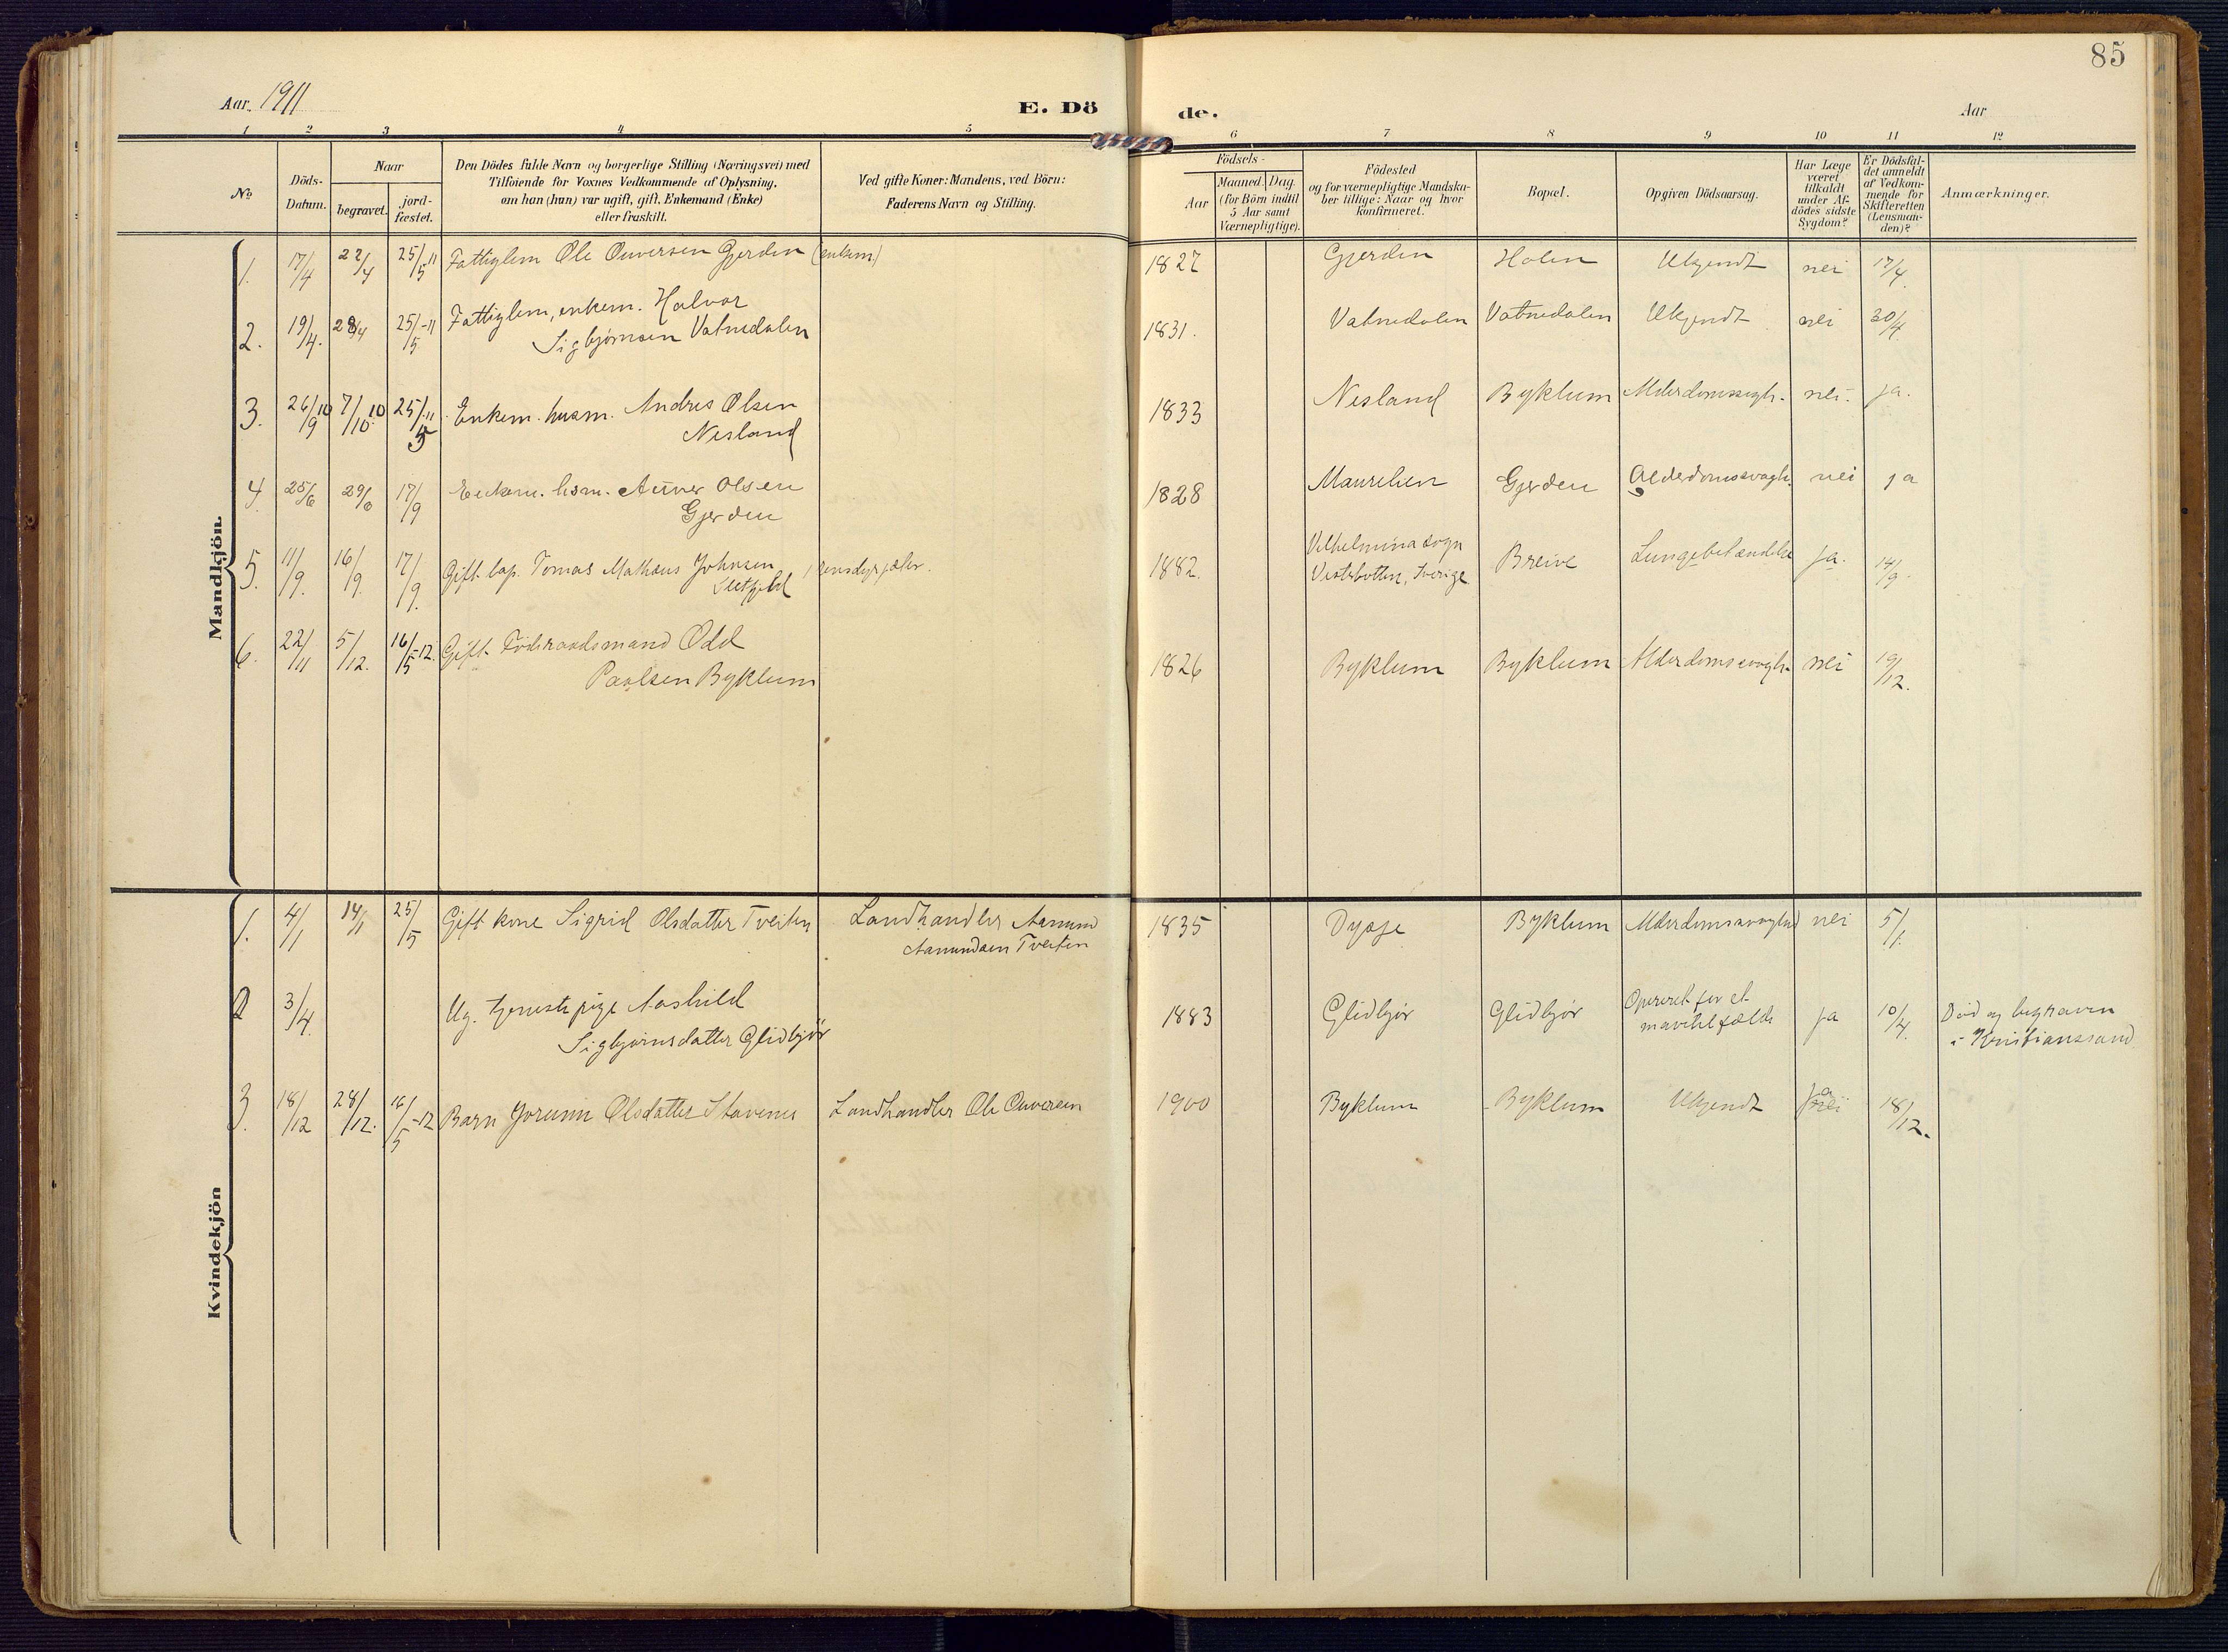 85
Aar. 1911
E. Dö
de.
Aar
1 2 3 4 5 6 7 8 9 10 11 12
No.
Döds-
Datum.
Naar
begravet.
jord-
fæstet.
Den Dödes fulde Navn og borgerlige Stilling (Næringsvei) med
Tilföiende for Voxnes Vedkommende af Oplysning,
om han (hun) var ugift, gift, Enkemand (Enke)
eller fraskilt.
Ved gifte Koner: Mandens, ved Börn:
Faderens Navn og Stilling.
Födsels-
Aar
Maaned. Dag.
(for Börn indtil
5 Aar samt
Værnepligtige).
Födested
og for værnepligtige Mandska-
ber tillige: Naar og hvor
konfirmeret.
Bopæl.
Opgiven Dödsaarsag.
Har Læge
været
tilkaldt
under Af-
dödes sidste
Sygdom?
Er Dödsfal-
det anmeldt
af Vedkom-
mende for
Skifteretten
(Lensman-
den)?
Anmærkninger.
Mandkjön.
1. 17/4 22/4 25/5-11 Fattiglem Ole Ouversen Gjerden (enkem) 1827 Gjerden Holen Ukjendt nei 17/4.
2. 19/4. 29/4 25/5-11 Fattiglem, enkem. Halvor
Sigbjørnsen Vatnedalen 1831. Vatnedalen Vatnedalen Ukjendt nei 30/4.
3. 26/9 10 7/10. 10 25/5-11 Enkem. husm. Andres Olsen
Nesland 1833 Nesland Byklum Alderdomssvagh. nei. ja.
4. 25/6 29/6 17/9 Enkem. hsm. Auver Olsen
Gjerden 1828 Gjerden Alderdomssvagh. nei ja
5. 11/9. 16/9. 17/9. Gift lap. Tomas Matheus Johnsen rensdyrjæter.
1882. Vilhelmina sogn
Vesterbotten, Sverige Breive ja. 14/9.
6. 22/11 5/12. 16/5-12. Gift Föderaadsmand Odd
Paalsen Byklum 1826 Byklum Byklum Alderdomssvagh. nei 19/12.
Kvindekjön
1. 4/1 14/1 25/5 Gift kone Sigrid Olsdatter Tveiten Landhandler Aamund
Aamundsen Tveiten 1835 Byklum Alderdomssvaghed nei 5/1.
2 3/4. Ug. tjenestepige Aashild
Sigbjørnsdatter Glidbjör 1883 Glidbjör Glidbjör Opereret for et
mavetilfælde ja 10/4. Död og begraven
i Kristianssand.
3. 18/12 28/12. 16/5-12 Barn Jorunn Olsdatter Stavenes Landhandler Ole Ouversen 1900 Byklum Byklum Ukjendt ja nei 18/12.